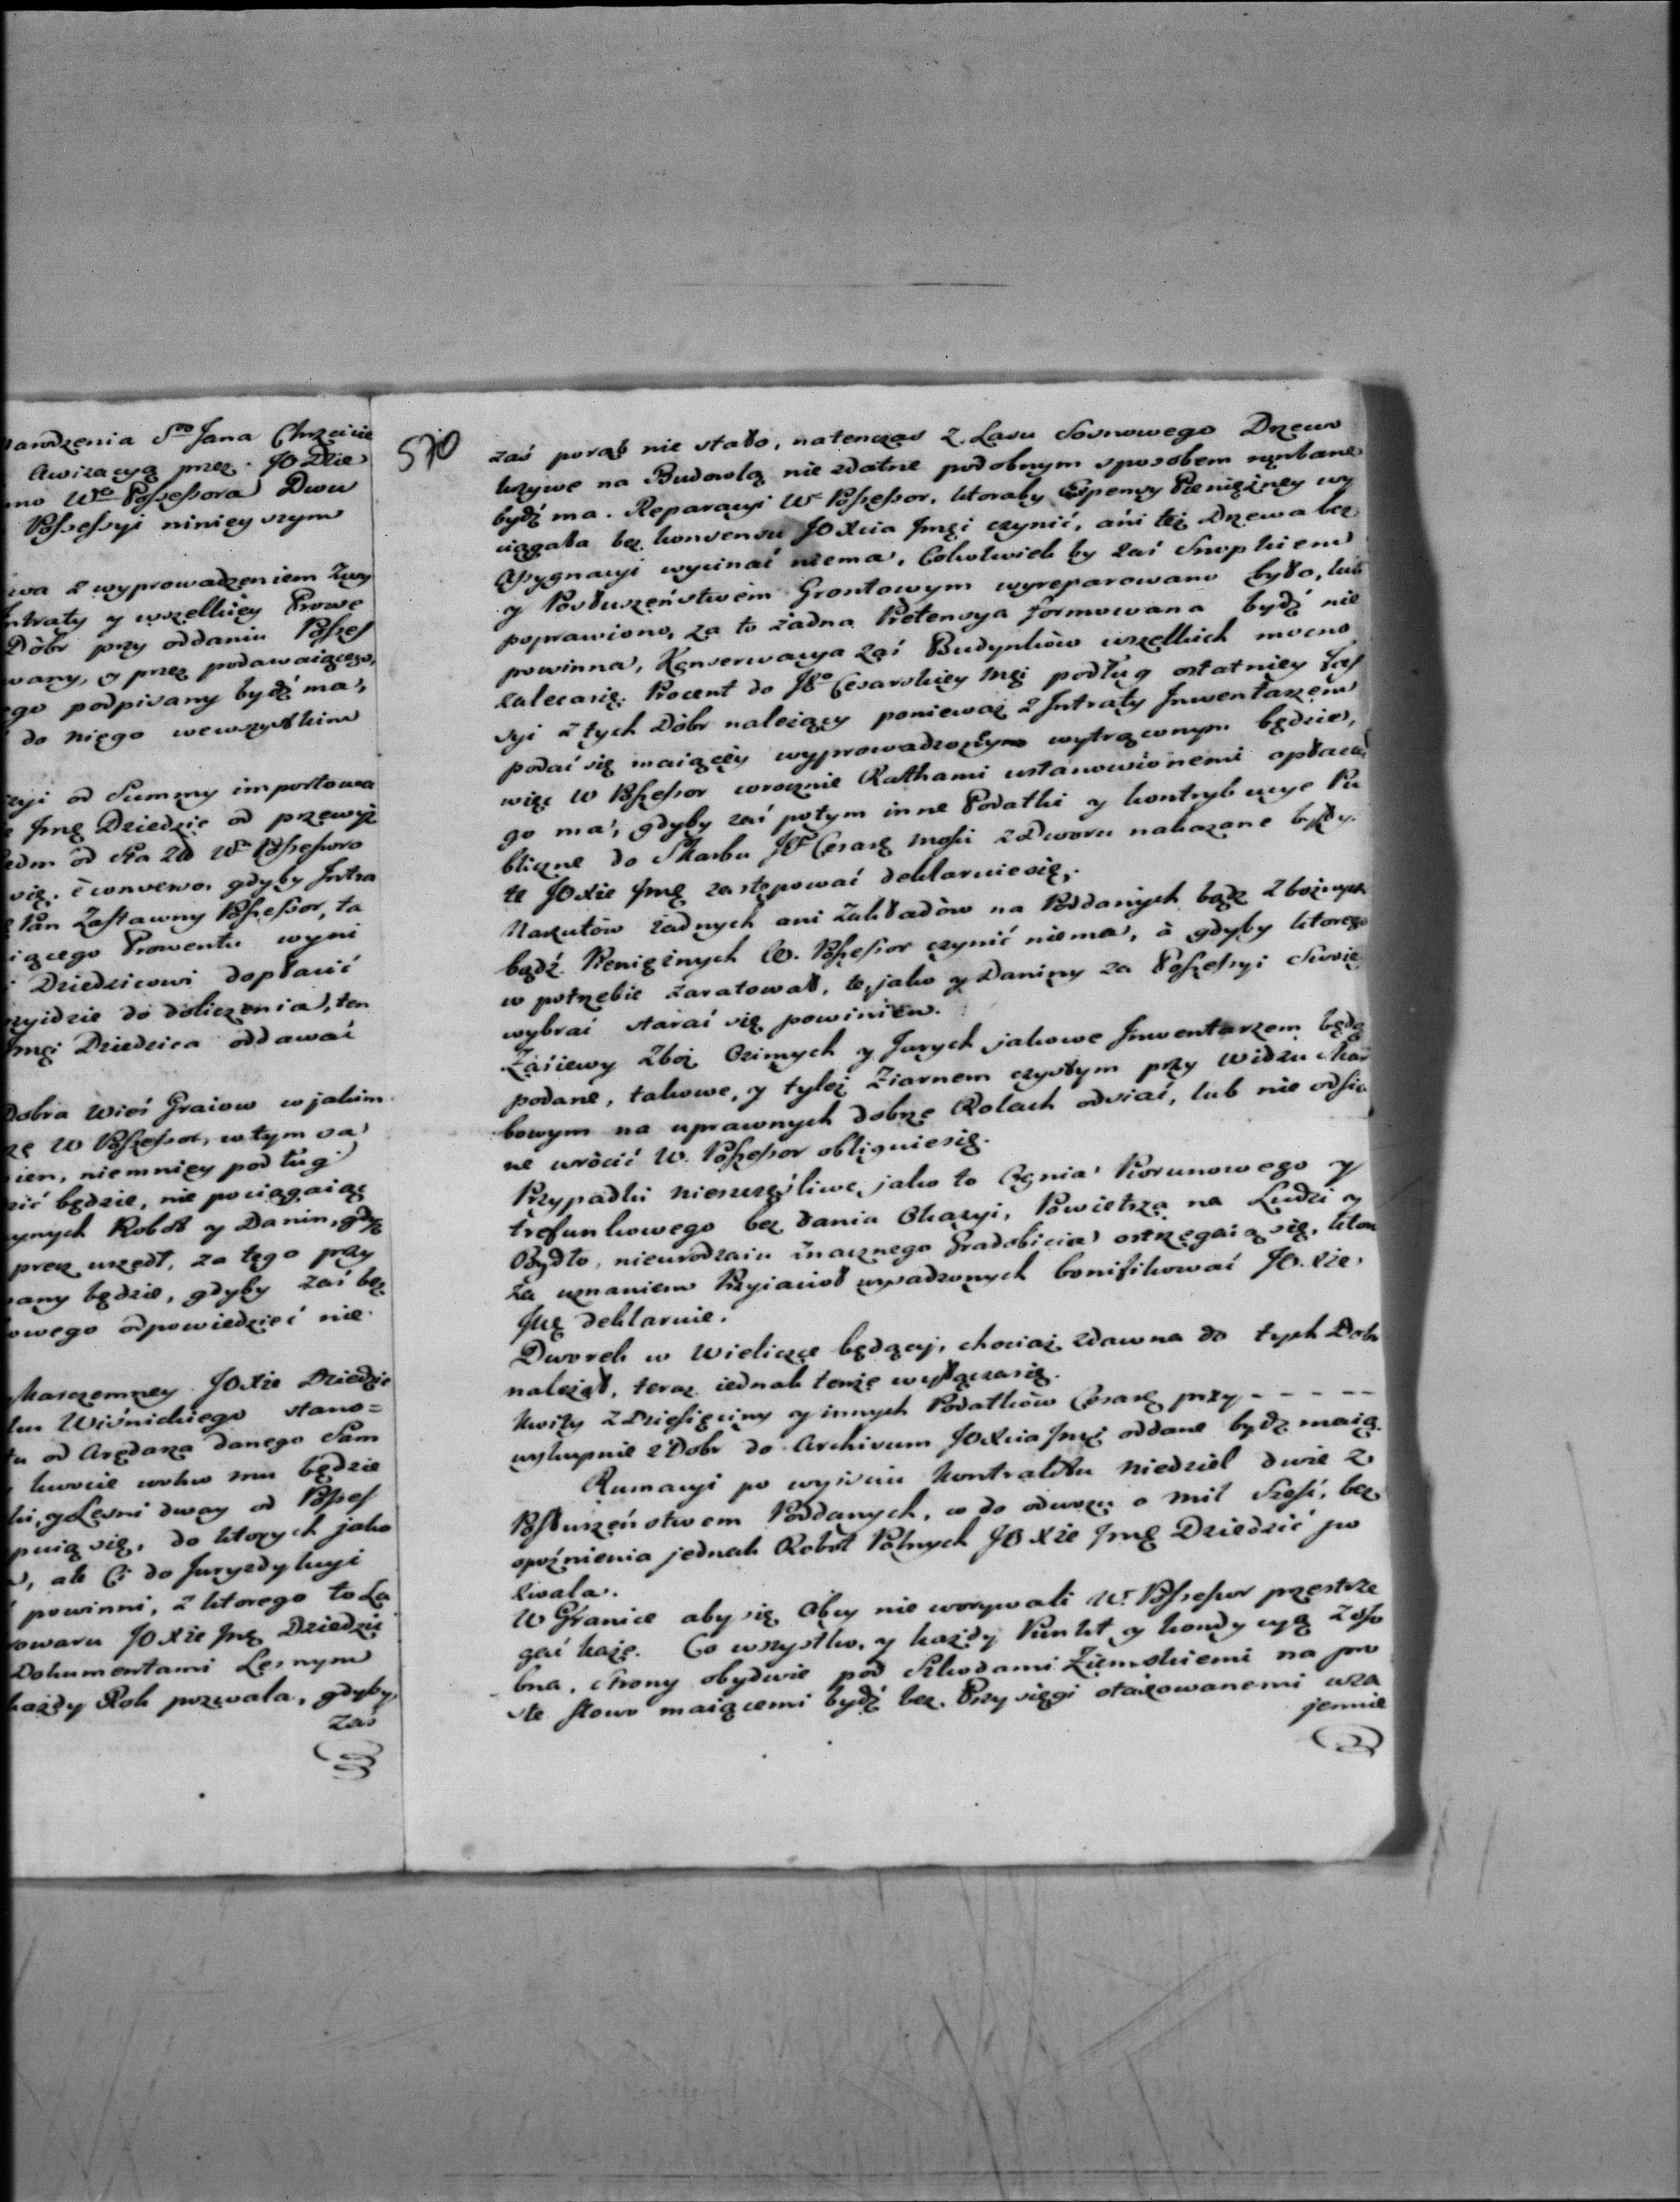 nawdzenia Sgo Jana Chrzcicie
Awizacyą przez JO Dzie
Wgo Possessora Dwu
Possessyi ninieyszym
z wyprowadzeniem
Intraty y wszelkiey Prowe
Dóbr przy oddaniu Posses
wany, y przez podawaiącego,
ego podpisany bydź ma,
do niego wewszystkim
od Summy importowa
Jmę Dziedzic od przewyż
od Wa Possessora
się. è converso, gdyby Intra
Pan Zastawny Possessor, ta
iącego Prowentu wyni
Dziedzicowi dopłacić
do doliczenia, ten
Jmęi Dziedzica oddawać
Dobra Wieś Graiow w jakim
W Possessor, w tym sa
ien, niemniey podług
zić będzie, nie pociągaiąc
ynych Robót y Danin, gdyż
precz uszedł, za tego przy
wany będzie, gdyby zaś bez
kowego odpowiedzieć nie
Karczemney JOXże Dziedzic
Wiśnickiego stano=
tu od Arędarza danego Sam
kwocie wolno mu będzie
ki, y Leśni dway od Posses
puią się, do których jako
, ale Ci do Juryzdykcyi
powinni, z ktorego to La
rowaru JOXże Jmę Dziedzic
Dokumentami Leśnym
każdy Rok pozwala, gdyby
zaś
570
zaś porąb nie stało, natenczas z Lasu Sosnowego Drzewo
krzywe na Budowlą nie zdatne podobnym sposobem rąmbane
bydź ma. Reparacyi Wr Possessor, ktoraby Expensy Pieniężney wy
ciągała bez konsensu JOXcia Jmęi czynić, áni też Drzewa bez
Assygnacyi wycinać niema, Cokolwiek by zaś Snopkiem
y Posłuszeństwem Grontowym wyreparowano było, lub
poprawiono, za to żadna Pretensya formowana bydź nie
powinna, Konserwacya zaś Budynków wszelkich mocno
zaleca się. Procent do Jgo Cesarskiey Męi podług ostatniey Fas
syi z tych Dóbr należący ponieważ z Intraty Inwentarzem
podać się maiącey wyprowadzoney wytrąconym będzie,
więc W Possessor wrocznie Rathami ustanowionemi opłacać
go ma, gdyby zaś potym inne Podatki y kontrybucye Pu
bliczne do Skarbu Jgo Cesars Mości z Dworu nakazane były.
te JOXże Jmę zastępować deklaruie się.
Narzutów żadnych ani Zakładów na Poddanych bądź Zbożnych
bądź Pieniężnych W. Possessor czynić niema, à gdyby ktorego
w potrzebie zaratował, te, jako y Daniny za Possessyi Swoię
wybrać starać się powinien.
Zasiewy Zbóż Ozimych y Jarych jakowe Inwentarzem będą
podane, takowe, y tyleż Ziarnem czystym przy Widzu Skar
bowym na uprawnych dobrze Rolach odsiać, lub nie odsia
ne wrócić W. Possessor obliguie się.
Przypadki nieszczęśliwe, jako to Ognia Piorunowego y
trefunkowego bez dania Okazyi, Powietrza na Ludzi y
Bydło, nieurodzaiu znacznego Gradobicia ostrzegaią się, ktore
za uznaniem Przyiaciół wysadzonych bonifikować JO. Xże
Jmę deklaruie.
Dworek w Wieliczce będący, chociaż zdawna do tych Dobr
należał, teraz iednak tenże wyłącza się.
Kwity z Dziesięciny y innych Podatków Cesars przy - - - - -
wykupnie z Dobr do Archivum JOXcia Jmęi oddane bydź maią.
Rumacyi po wyiściu Kontraktu niedziel dwie z
Posłuszeństwem Poddanych, to do odwozu o mil Sześć, bez
opoźnienia jednak Robot Polnych JOXże Jmę Dziedzic po
zwala.
W Granice aby się Obcy nie worywali Wr Possessor przestrze
gać każe. Co wszystko, y każdy Punkt y kondycyą z oso
bna, Strony obydwie pod Szkodami Ziemskiemi na pro
ste słowo maiącemi bydź bez Przysięgi otaxowanemi wza
jemnie